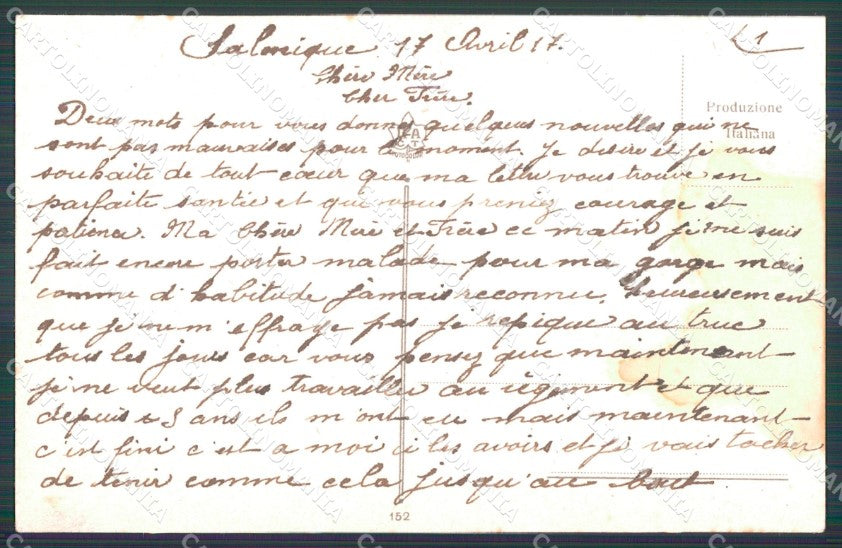 Salonique 17 Avril 17.
L1
Chère Mère
Cher Frère.
Produzione
Italiana
Deux mots pour vous donner quelques nouvelles qui ne
sont pas mauvaises pour le moment. Je desire et je vous
souhaite de tout cœur que ma lettre vous trouve en
parfaite santée et que vous preniez courage et
patience. Ma Chère Mère et Frère ce matin je me suis
fait encore porter malade pour ma gorge mais
comme d'habitude jamais reconnu, heureusement
que je ne m'effraye pas je repique au truc
tous les jours car vous pensez que maintenant
je ne veut plus travailler au régiment et que
depuis 3 ans ils m'ont eu mais maintenant
c'est fini c'est a moi a les avoirs et je vais tacher
de tenir comme cela jusqu'au bout
152
CARTOLINOMANIA